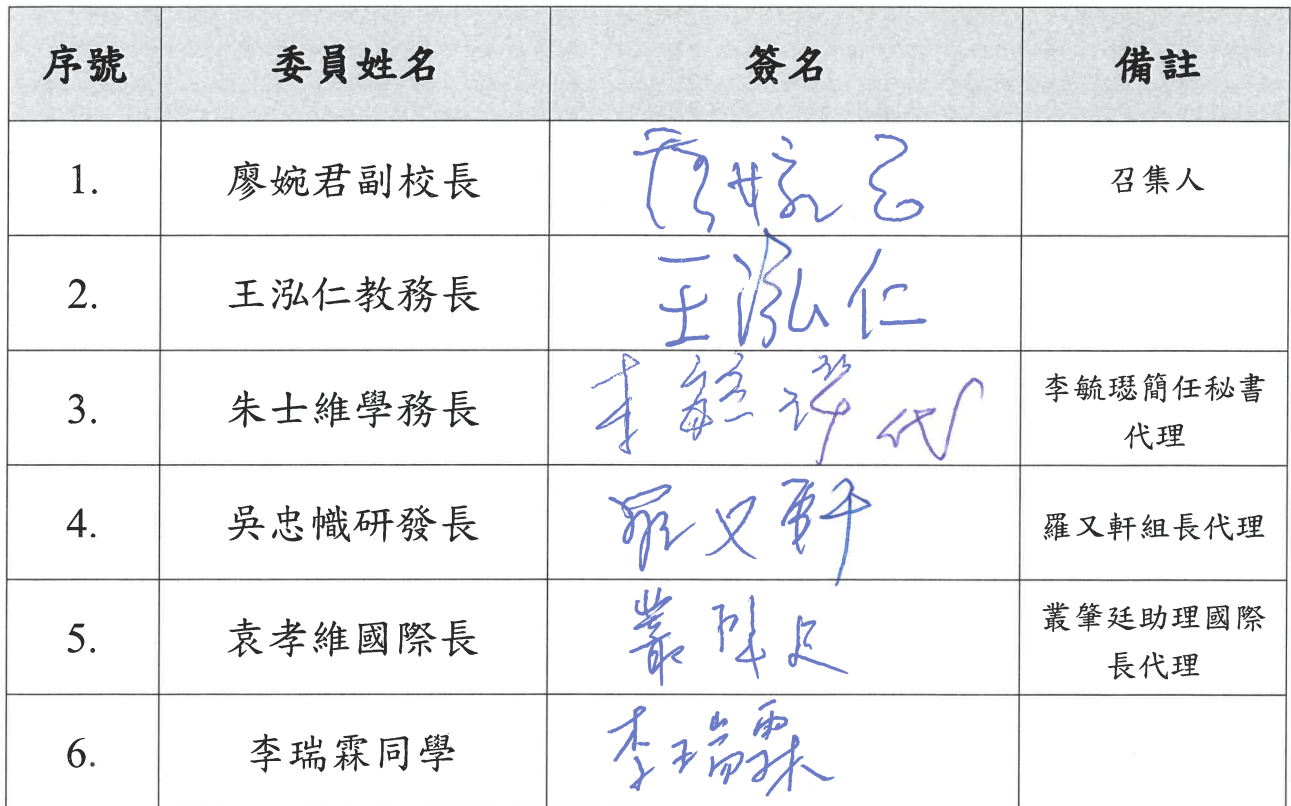 序號 委員姓名 簽名 備註
1. 廖婉君副校長 廖婉君 召集人
2. 王泓仁教務長 王泓仁
3. 朱士維學務長 李毓璱代 李毓璱簡任秘書
代理
4. 吳忠幟研發長 羅又軒 羅又軒組長代理
5. 袁孝維國際長 叢肇廷 叢肇廷助理國際
長代理
6. 李瑞霖同學 李瑞霖